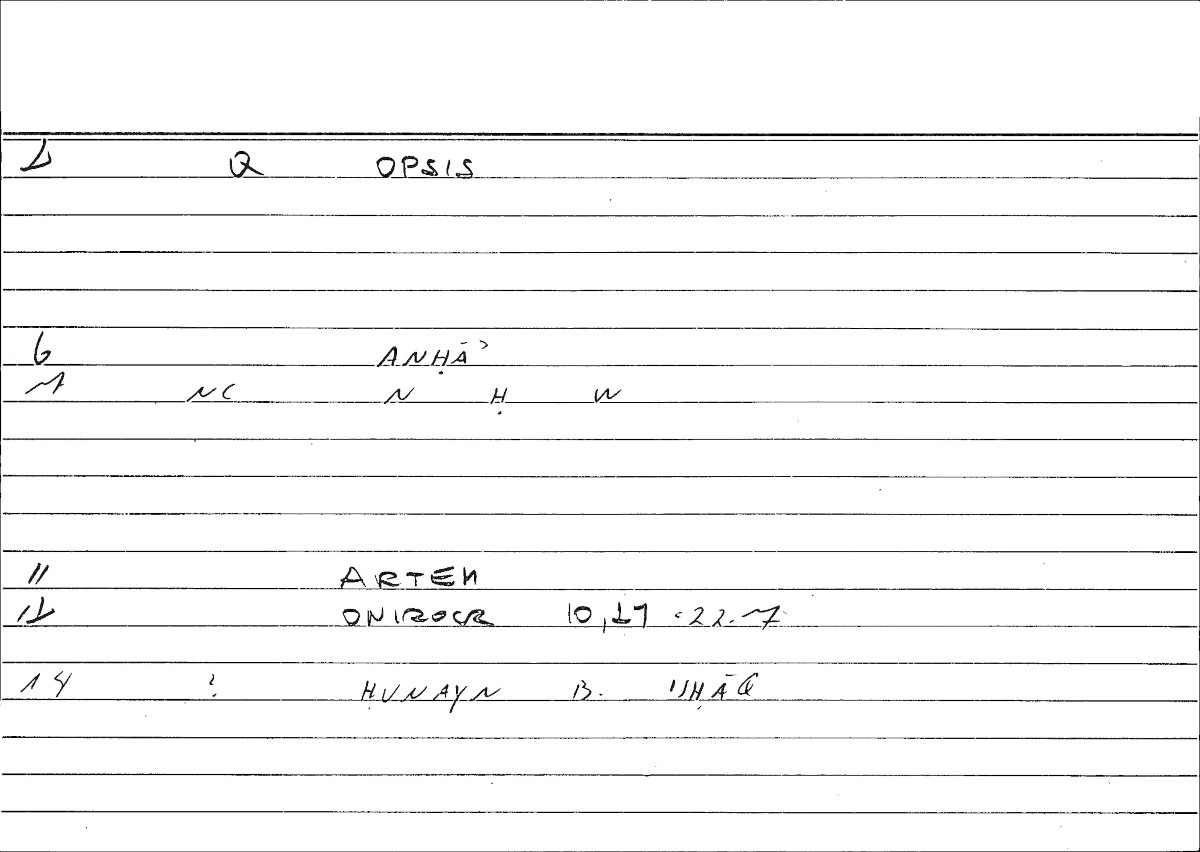 2 Q OPSIS
6 ANḤĀʾ
7 NC N Ḥ W
11 ARTEM
12 ONIROCR 10,27 -22.7
14 ? ḤUNAYN B. ISḤĀQ